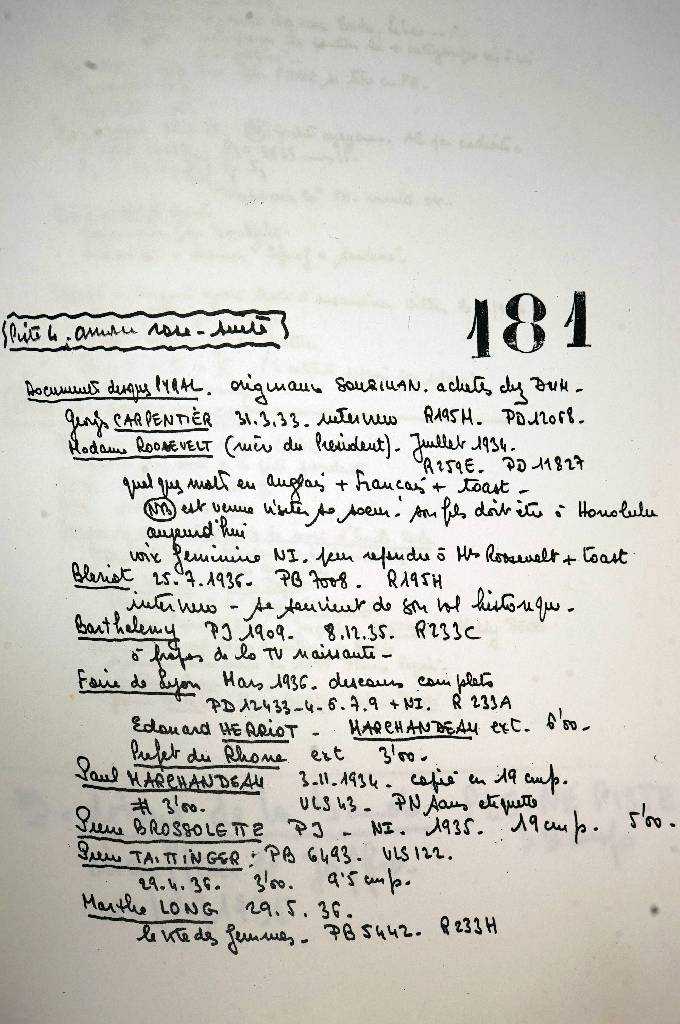 181
Piste 4. amorce rose - suite
Document disques PYRAL. originaux SOURIMAN. achetés chez DUH -
Georges CARPENTIER 31.3.33. interview R195H. PD12058.
Madame ROOSEVELT (mère du Président). Juillet 1934.
R259E. PD 11827
quelques mots en anglais + Français + toast -
NB est venue visiter sa soeur : son fils doit être à Honolulu
aujourd'hui
voix féminine NI. pour répondre à Mrs Roosevelt + toast
Blériot 25.7.1936. PB 7008. R195H
interview - se souvient de son vol historique.
Barthelemy PJ 1909. 8.12.35. R233C
à propos de la TV naissante -
Foire de Lyon Mars 1936. discours complets
PD 12433-4-6.7.9 + NI. R 233A
Edouard HERRIOT - MARCHANDEAU ext. 6'00 -
Préfet du Rhône ext 3'00 -
Paul MARCHANDEAU 3-11-1934. copié en 19 cmp.
# 3'00. ULS 43. PN sans etiquette
Pierre BROSSOLETTE PJ - NI. 1935. 19 cmp. 5'00.
Pierre TAITTINGER : PB 6493. ULS 122.
29.4.36. 3'00. 9'5 cmp.
Marthe LONG 29.5.36.
le vote des femmes - PB 5442. R 233H